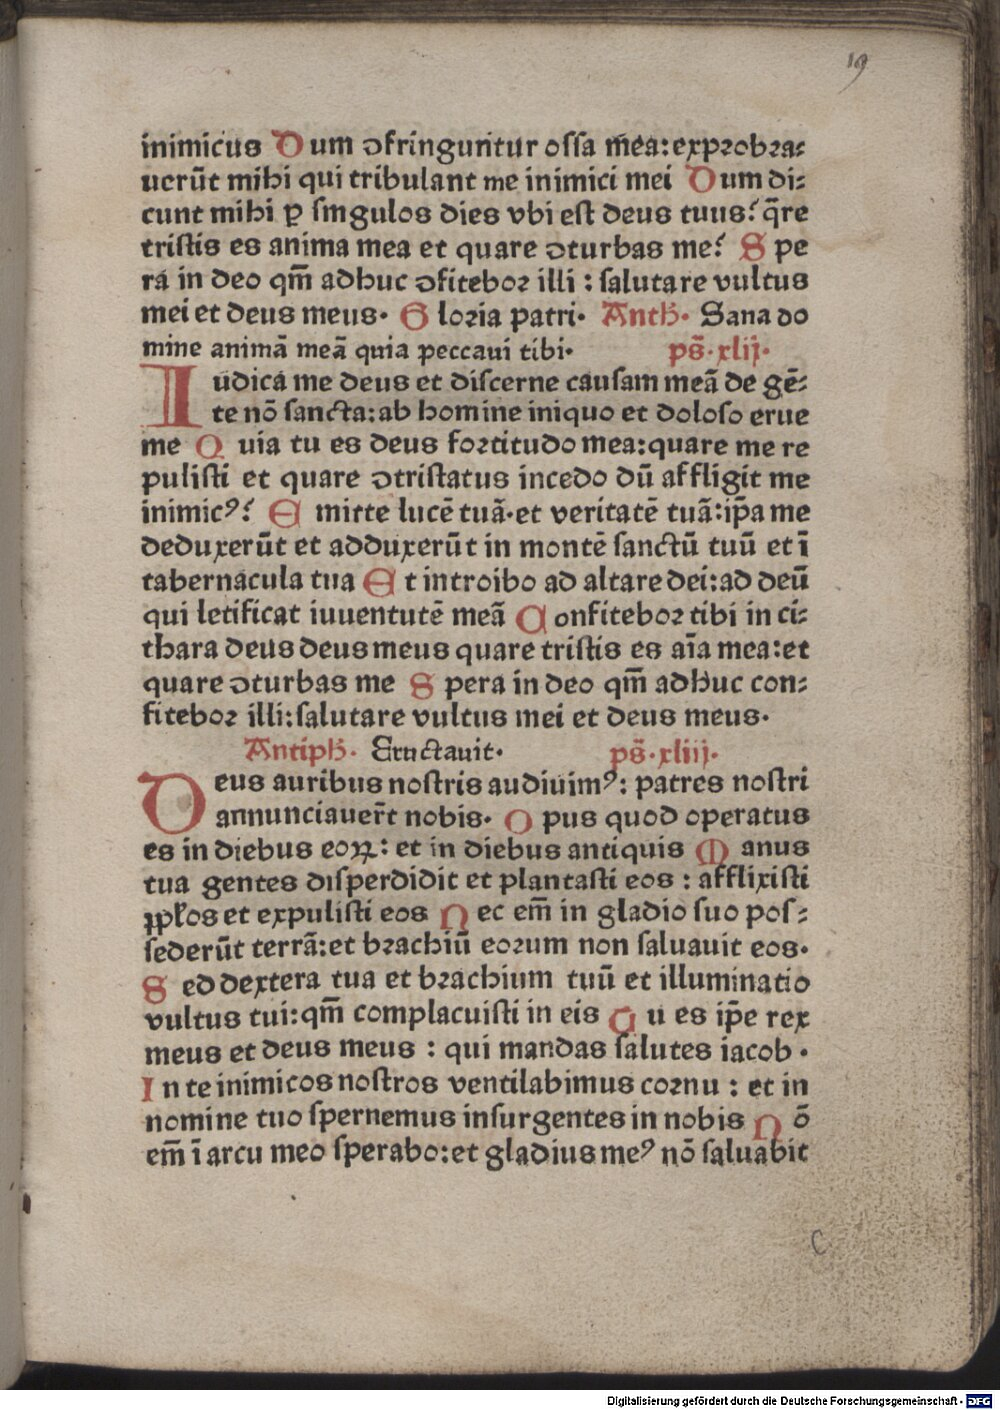 19
inimicus Dum ꝯfringuntur ossa mea: exprobra⸗
uerūt mihi qui tribulant me inimici mei Dum di⸗
cunt mihi ꝑ singulos dies vbi est deus tuus? q̄re
tristis es anima mea et quare ꝯturbas me? Spe
ra in deo qm̄ adhuc ꝯfitebor illi : salutare vultus
mei et deus meus. Gloria patri. Anth. Sana do
mine animā meā quia peccaui tibi. ps̄. xlij.
Iudica me deus et discerne causam meā de gē⸗
te nō sancta: ab homine iniquo et doloso erue
me Quia tu es deus fortitudo mea: quare me re
pulisti et quare ꝯtristatus incedo dū affligit me
inimicꝰ? Emitte lucē tuā. et veritatē tuā: ip̄a me
deduxerūt et adduxerūt in montē sanctū tuū et ī
tabernacula tua Et introibo ad altare dei: ad deū
qui letificat iuuentutē meā Confitebor tibi in ci⸗
thara deus deus meus quare tristis es aīa mea: et
quare ꝯturbas me Spera in deo qm̄ adhuc con⸗
fitebor illi: salutare vultus mei et deus meus.
Antiph. Eructauit. ps̄. xliij.
Deus auribus nostris audiuimꝰ: patres nostri
annunciauer̄t nobis. Opus quod operatus
es in diebus eoꝝ: et in diebus antiquis Manus
tua gentes disperdidit et plantasti eos : afflixisti
pp̄los et expulisti eos Nec em̄ in gladio suo pos⸗
sederūt terrā: et brachiū eorum non saluauit eos.
Sed dextera tua et brachium tuū et illuminatio
vultus tui: qm̄ complacuisti in eis Tu es ip̄e rex
meus et deus meus : qui mandas salutes iacob.
In te inimicos nostros ventilabimus cornu : et in
nomine tuo spernemus insurgentes in nobis Nō
em̄ ī arcu meo sperabo: et gladius meꝰ nō saluabit
C
Digitalisierung gefördert durch die Deutsche Forschungsgemeinschaft - DFG